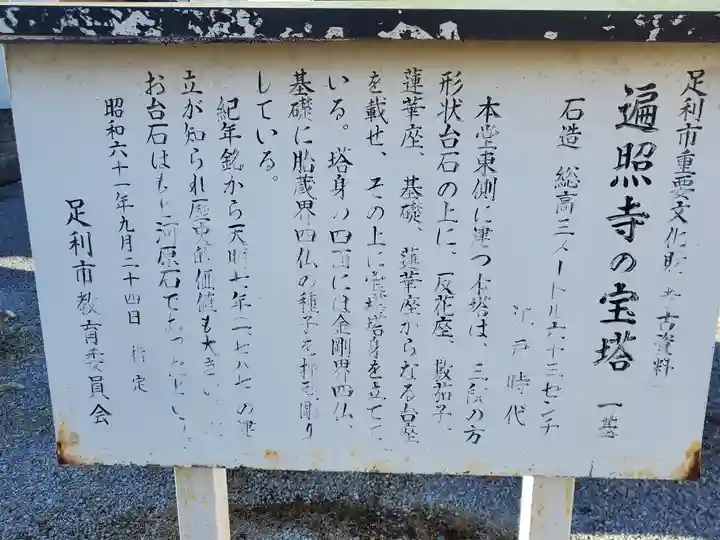 足利市重要文化財 考古資料
遍照寺の宝塔 一基
石造 総高三メートル六十三センチ
江戸時代
本堂東側に建つ本塔は、三段の方
形状台石の上に、反花座、敷茄子、
蓮華座、基礎、蓮華座からなる台座
を載せ、その上に宝塔塔身を立てて
いる。塔身の四面には金剛界四仏、
基礎に胎蔵界四仏の種子を 彫り
している。
紀年銘から天明七年一七八七の建
立が知られ歴史的価値も大き
お台石はもと河原石であったという。
昭和六十一年九月二十四日 指定
足利市教育委員会